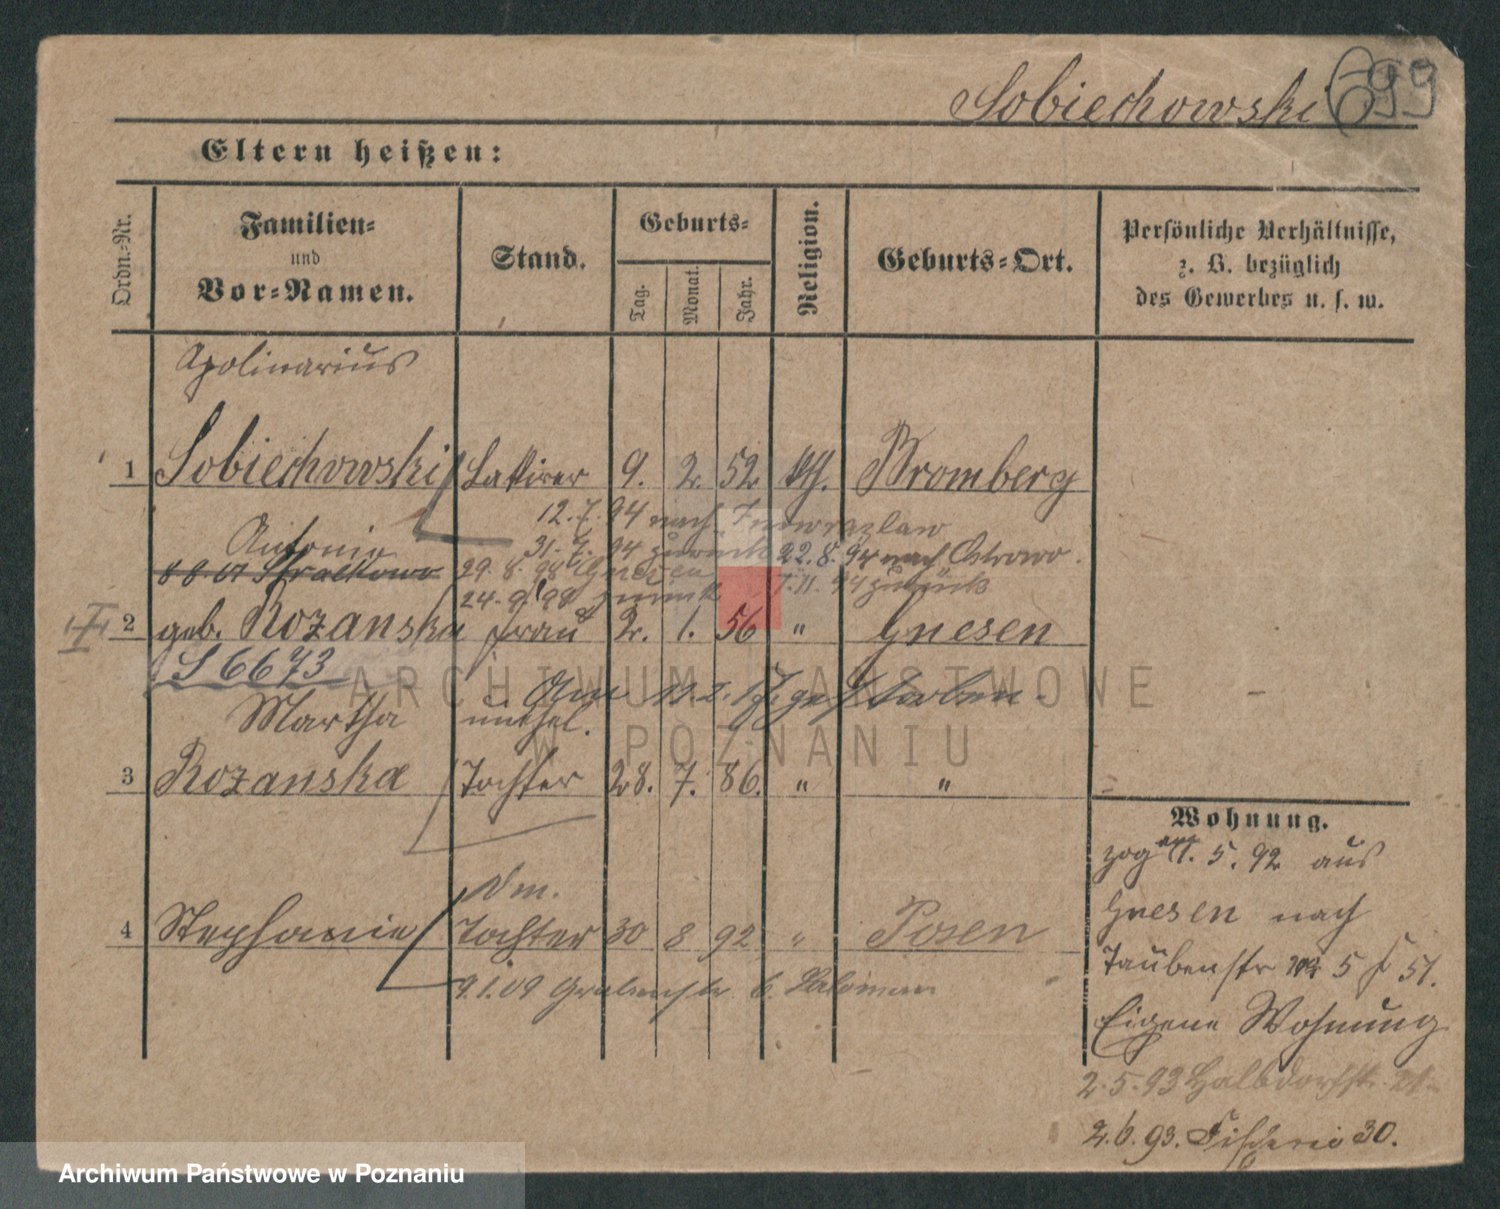 Sobiechowski 699
Eltern heißen:
Ordn.-Nr.
Familien-
und
Vor-Namen.
Stand.
Geburts-
Tag.
Monat.
Jahr.
Religion.
Geburts-Ort.
Persönliche Verhältnisse,
z. B. bezüglich
des Gewerbes u. s. w.
Apolinarius
1 Sobiechowski Lakirer 9. 2. 52 kth. Bromberg
12.7.94 nach Inowrazlaw
Antonie
31.7.94 zurück 22.8.94 nach Ostrowo.
29.8.98 Gnesen 7.11.94 zurück
24.9.98 zurück
2 geb. Rozanska Frau 2. 1. 56 " Gnesen
S 6673
gestorben.
Martha unehel.
3 Rozanska Tochter 28. 7. 86. " "
Wohnung.
zog am 1.5.92 aus
Gnesen nach
Taubenstr 5
Eigene Wohnung
2.5.93 Halbdorfstr.
2.6.93. Fischerei 30.
4 Stephanie Tochter 30 8 92 " Posen
9.1.09 Grabenstr 6.
ARCHIWUM PAŃSTWOWE
W POZNANIU
Archiwum Państwowe w Poznaniu